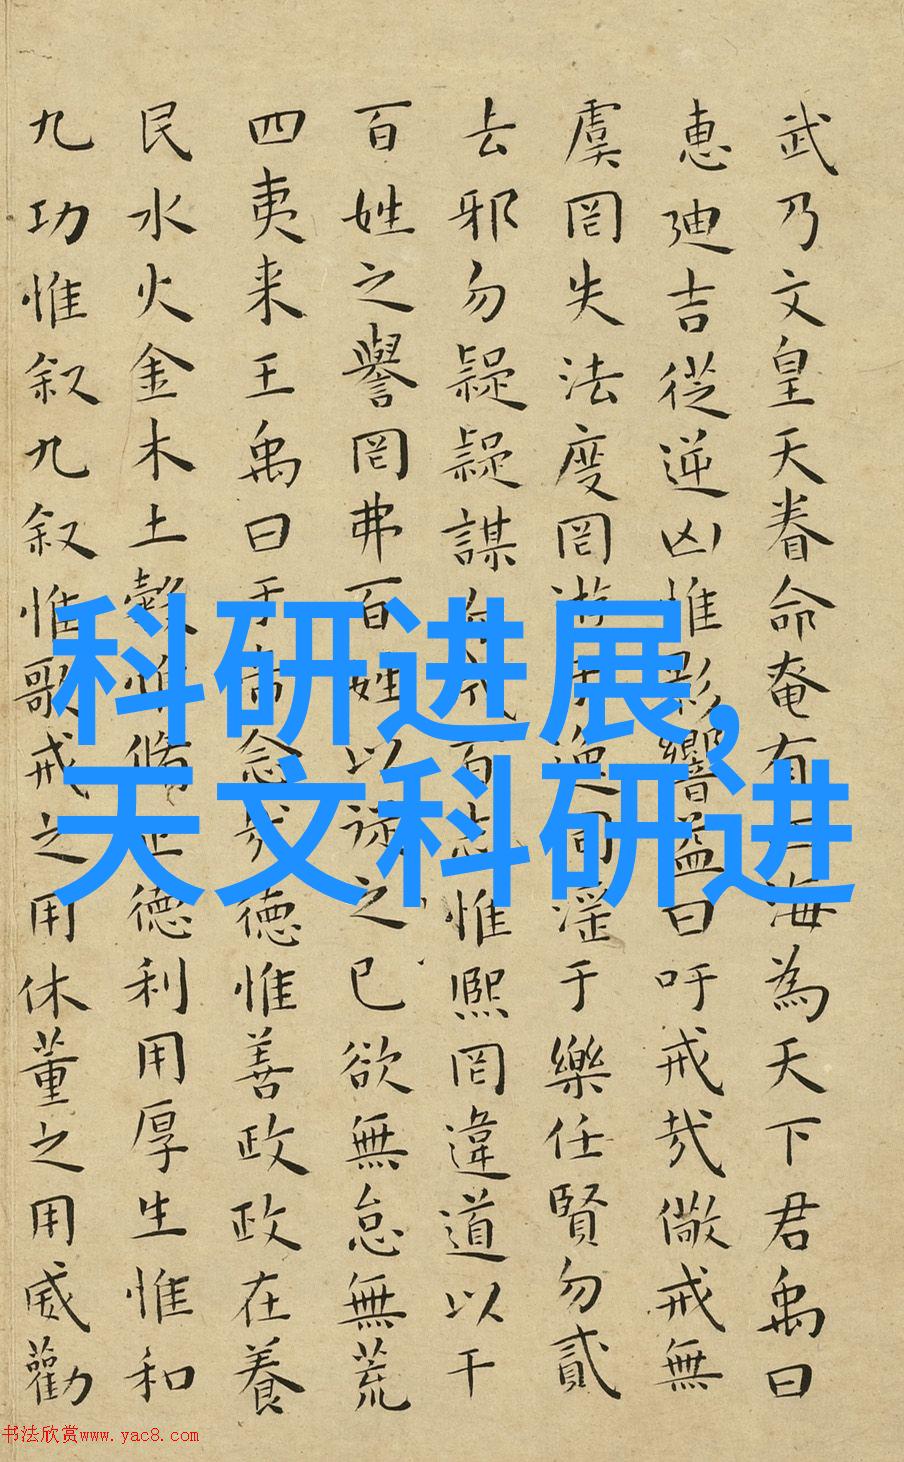 武乃文皇天眷命奄有海為天下君禹曰
惠迪吉從逆凶惟影響益曰吁戒哉儆戒無
虞罔失法度罔游于逸罔淫于樂任賢勿貳
去邪勿疑疑謀勿成百志惟熙罔違道以干
百姓之譽罔弗百姓以之已欲無怠無荒
四夷来王禹曰于帝念哉德惟善政政在養
民水火金木土穀惟脩正德利用厚生惟和
九功惟叙九叙惟歌戒之用休董之用威勸
科研进展,
天文科研进
书法欣赏www.yac8.com